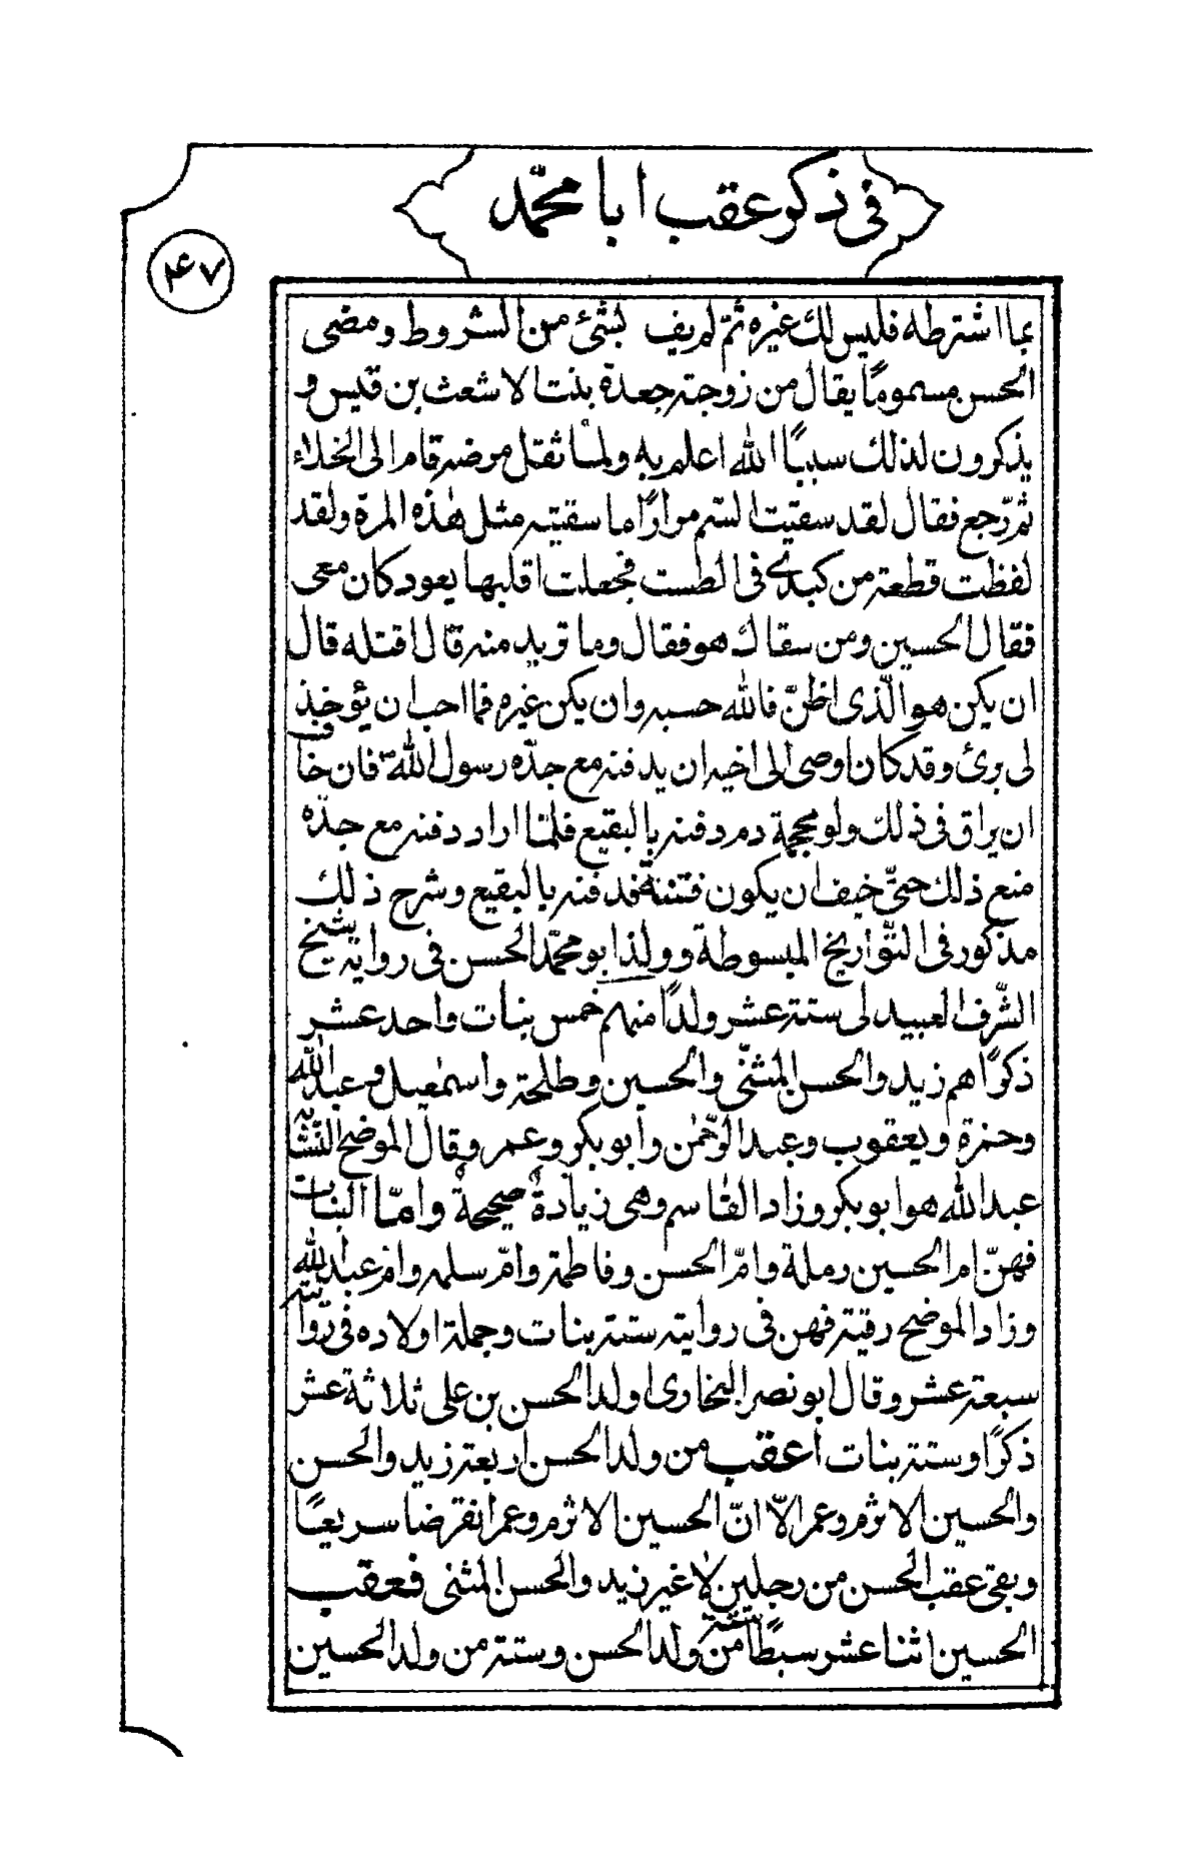 في ذكر عقب ابا محمّد
۴۷
بما اشترطه فليس لك غيره ثمّ لم يف بشئ من الشروط و مضى
الحسن مسمومًا يقال من زوجته جعدة بنت الاشعث بن قيس و
يذكرون لذلك سببًا الله اعلم به ولما ثقل مرضه قام الى الخلاء
ثمّ رجع فقال لقد سقيت السّم مرارًا ما سقيته مثل هذه المرة ولقد
لفظت قطعة من كبدي في الطست فجعلت اقلبها بعود كان معى
فقال الحسين ومن سقاك هو فقال وما تريد منه قال اقتله قال
ان يكن هو الّذى اظنّ فالله حسبه وان يكن غيره فما احب ان يؤخذ
لى برئ وقد كان اوصى الى اخيه ان يدفنه مع جدّه رسول الله فان خاف
ان يراق في ذلك ولو محجمة دم دفنه بالبقيع فلمّا اراد دفنه مع جدّه
منع ذلك حتّى خيف ان يكون فتنة فدفنه بالبقيع وشرح ذلك
مذكور في التّواريخ المبسوطة وولد ابو محمّد الحسن في رواية شيخ
الشّرف العبيدلى ستة عشر ولدًا منهم خمس بنات واحد عشر
ذكرًا هم زيد والحسن المثنّى والحسين وطلحة واسمعيل وعبدالله
وحمزة ويعقوب وعبد الرّحمن وابو بكر وعمر وقال الموضح النّسّابة
عبدالله هو ابو بكر وزاد القاسم وهى زيادة صحيحة وامّا البنات
فهنّ ام الحسين رملة وامّ الحسن وفاطمة وامّ سلمه وام عبدالله
وزاد الموضح رقية فهن في روايته ستة بنات وجملة اولاده في روايته
سبعة عشر وقال ابو نصر البخارى اولد الحسن بن على ثلاثة عشر
ذكرًا وستة بنات أعقب من ولد الحسن اربعة زيد والحسن
والحسين الاثرم وعمر الّا انّ الحسين الاثرم وعمر انقرضا سريعًا
وبقى عقب الحسن من رجلين لا غير زيد والحسن المثنى فعقب
الحسين اثنا عشر سبطًا ستة من ولد الحسن وستة من ولد الحسين